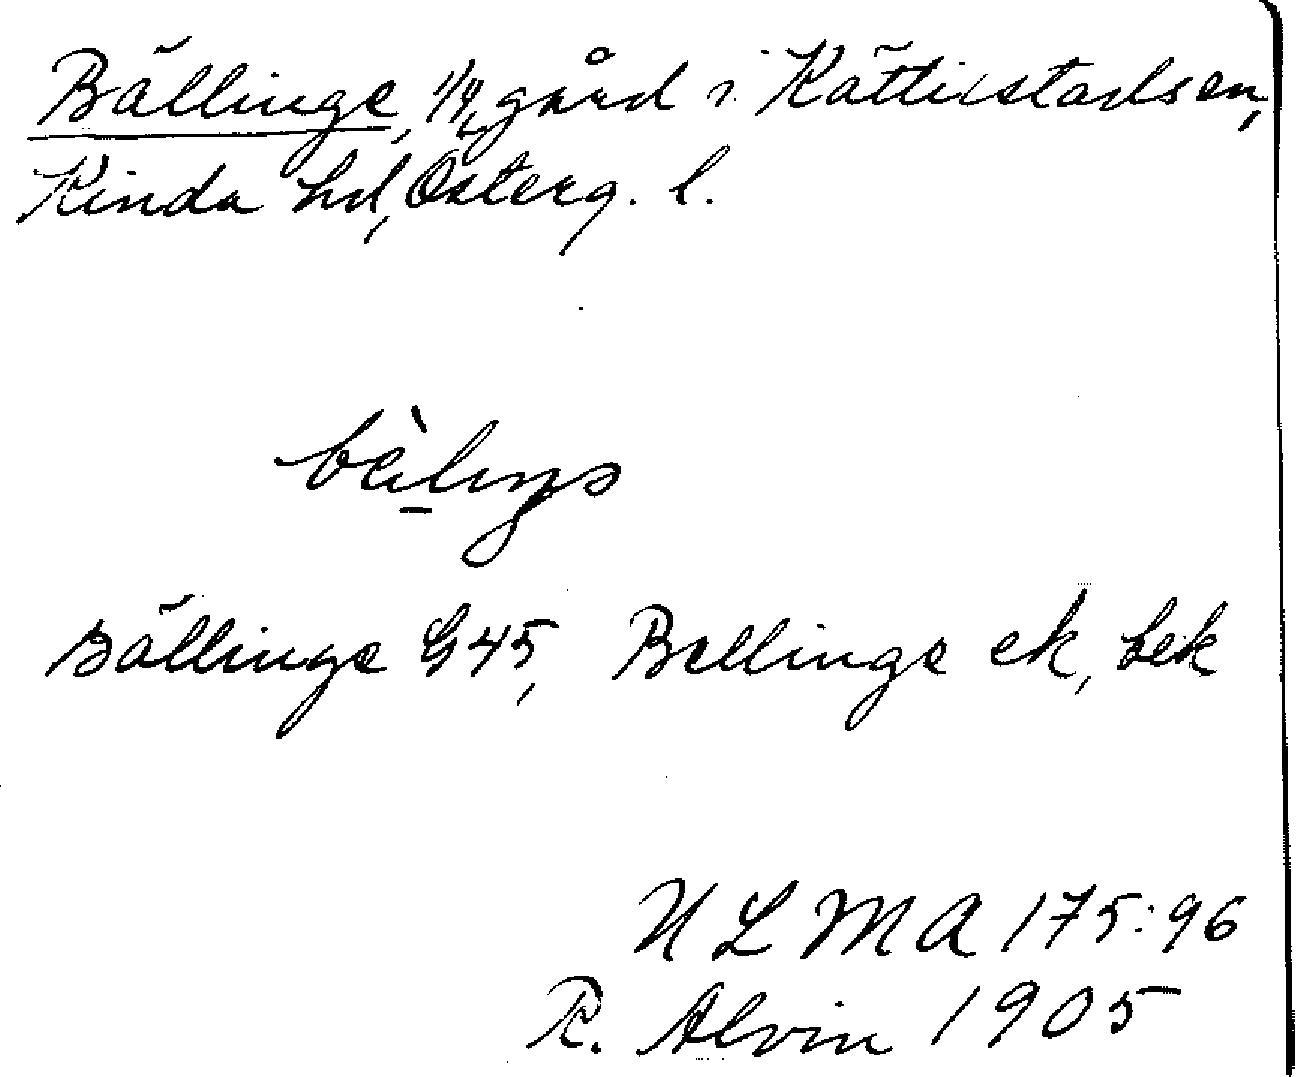 Bällinge, 1/4 gård i Kättilstads sn,
Kinda hd, Österg. l.
Bällinge G45, Bellinge ek, hek
ULMA 175:96
R. Alvin 1905